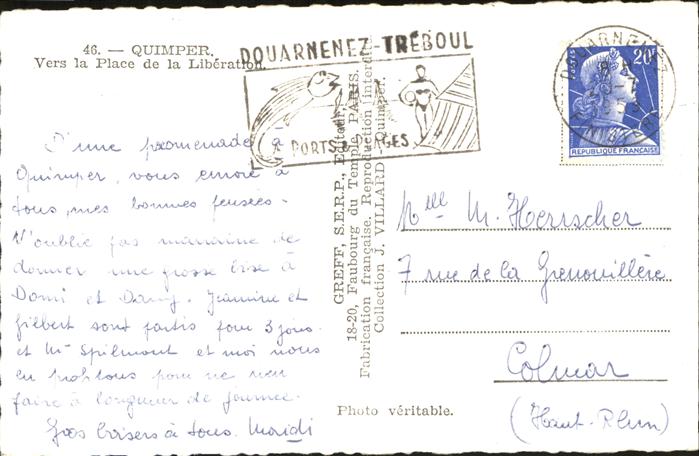 46. — QUIMPER.
Vers la Place de la Libération.
DOUARNENEZ-TRÉBOUL
PORTS PLAGES
DOUARNENEZ
FINISTERE
20F
POSTES
REPUBLIQUE FRANÇAISE
D'une promenade à
Quimper, vous envoie à
tous, mes bonnes pensées.
N'oublie pas marraine de
donner une grosse bise à
Domi et Dany. Jeannine et
Gilbert sont partis pour 3 jours
et Mr Spilmont et moi nous
en profitons pour ne rien
faire à longueur de journée.
Gros baisers à tous.
GREFF, S.E.R.P., Editeur,
18-20, Faubourg du Temple, PARIS.
Fabrication française. Reproduction interdite.
Collection J. VILLARD Quimper.
Photo véritable.
Melle M. Herrscher
7 rue de la Grenouillère
Colmar
(Haut-Rhin)